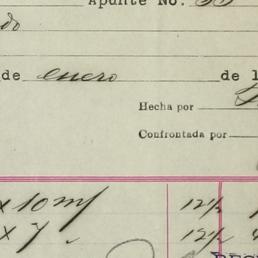 Apunte No.
do
de enero de 1
Hecha por
Confrontada por
x 10 m/ 12½
x 7 " 12½